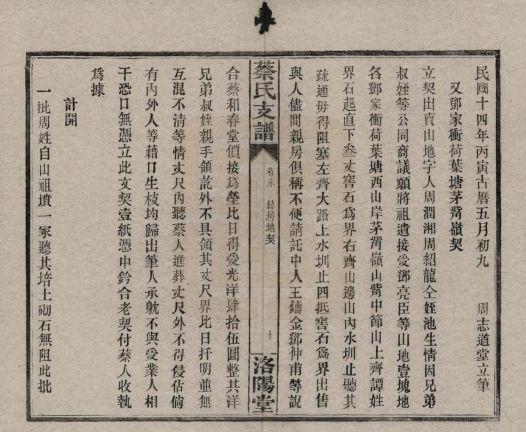 民國十四年丙寅古曆五月初九 周志道堂立筆
又鄧家衝荷葉塘茅背嶺契
立契出賣山地字人周潤湘周紹龍仝姪池生情因兄弟
叔姪等公同商議願將祖遺接受鄧亮臣等山地壹塊地
名鄧家衝荷葉塘西山岸茅背嶺山背中節山上齊譚姓
界石起直下叁丈窖石爲界右齊山邊山內水圳止聽其
疏通毋得阻塞左齊大路上水圳止四抵窖石爲界出售
與人儘問親房俱稱不便請託中人王鑄金鄧神甫等說
蔡氏支譜
卷末 地契
十
洛陽堂
合蔡和春堂價接爲塋比日得受光洋肆拾伍圓整其洋
兄弟叔姪親手領訖外不具領其丈尺界比日扦明並無
互混不清等情丈尺內聽蔡人進葬丈尺外不得侵佔倘
有內外人等藉口生枝均歸出筆人承躭不與受業人相
干恐口無憑立此文契壹紙憑中鈐合老契付蔡人收執
爲據
計開
一批周姓自山祖墳一冢聽其培土砌石無阻此批